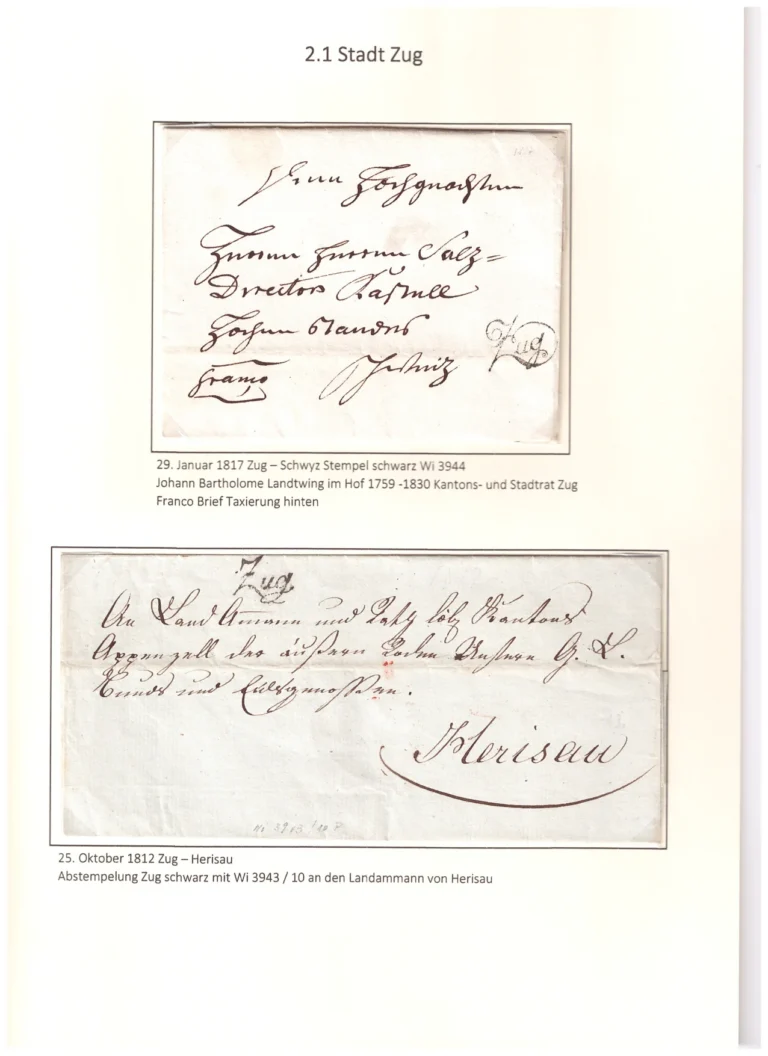 2.1 Stadt Zug
Herrn Hochgeachten
Herren Herren Salz=
Director
Hochen Standes
Zug
Franco
Schweitz
29. Januar 1817 Zug – Schwyz Stempel schwarz Wi 3944
Johann Bartholome Landtwing im Hof 1759 -1830 Kantons- und Stadtrat Zug
Franco Brief Taxierung hinten
Zug
An Land Amann und Rath löbl. Kantons
Appenzell der äußern Roden Unsere G. L.
Bunds und Eidsgenossen.
Herisau
25. Oktober 1812 Zug – Herisau
Abstempelung Zug schwarz mit Wi 3943 / 10 an den Landammann von Herisau